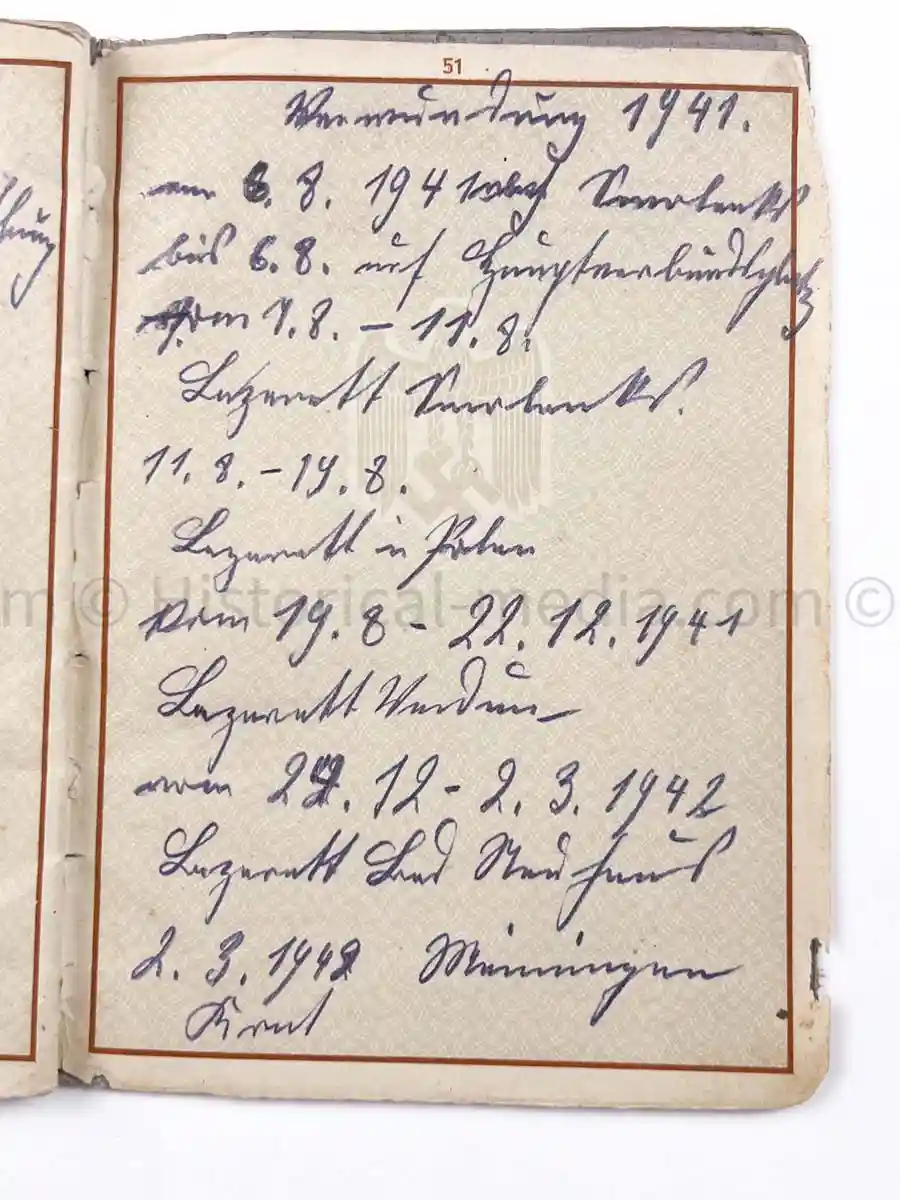 51
Verwundung 1941.
am 6. 8. 1941 Smolensk
bis 6.8. auf Hauptverbandsplatz
vom 7.8. – 11.8.
Lazarett Smolensk.
11. 8. – 19. 8.
Lazarett in Polen
m © Historical-media.com ©
vom 19. 8 – 22. 12. 1941
Lazarett Verdun
vom 22. 12 – 2. 3. 1942
Lazarett Bad Neuhaus
2. 3. 1942 Meiningen